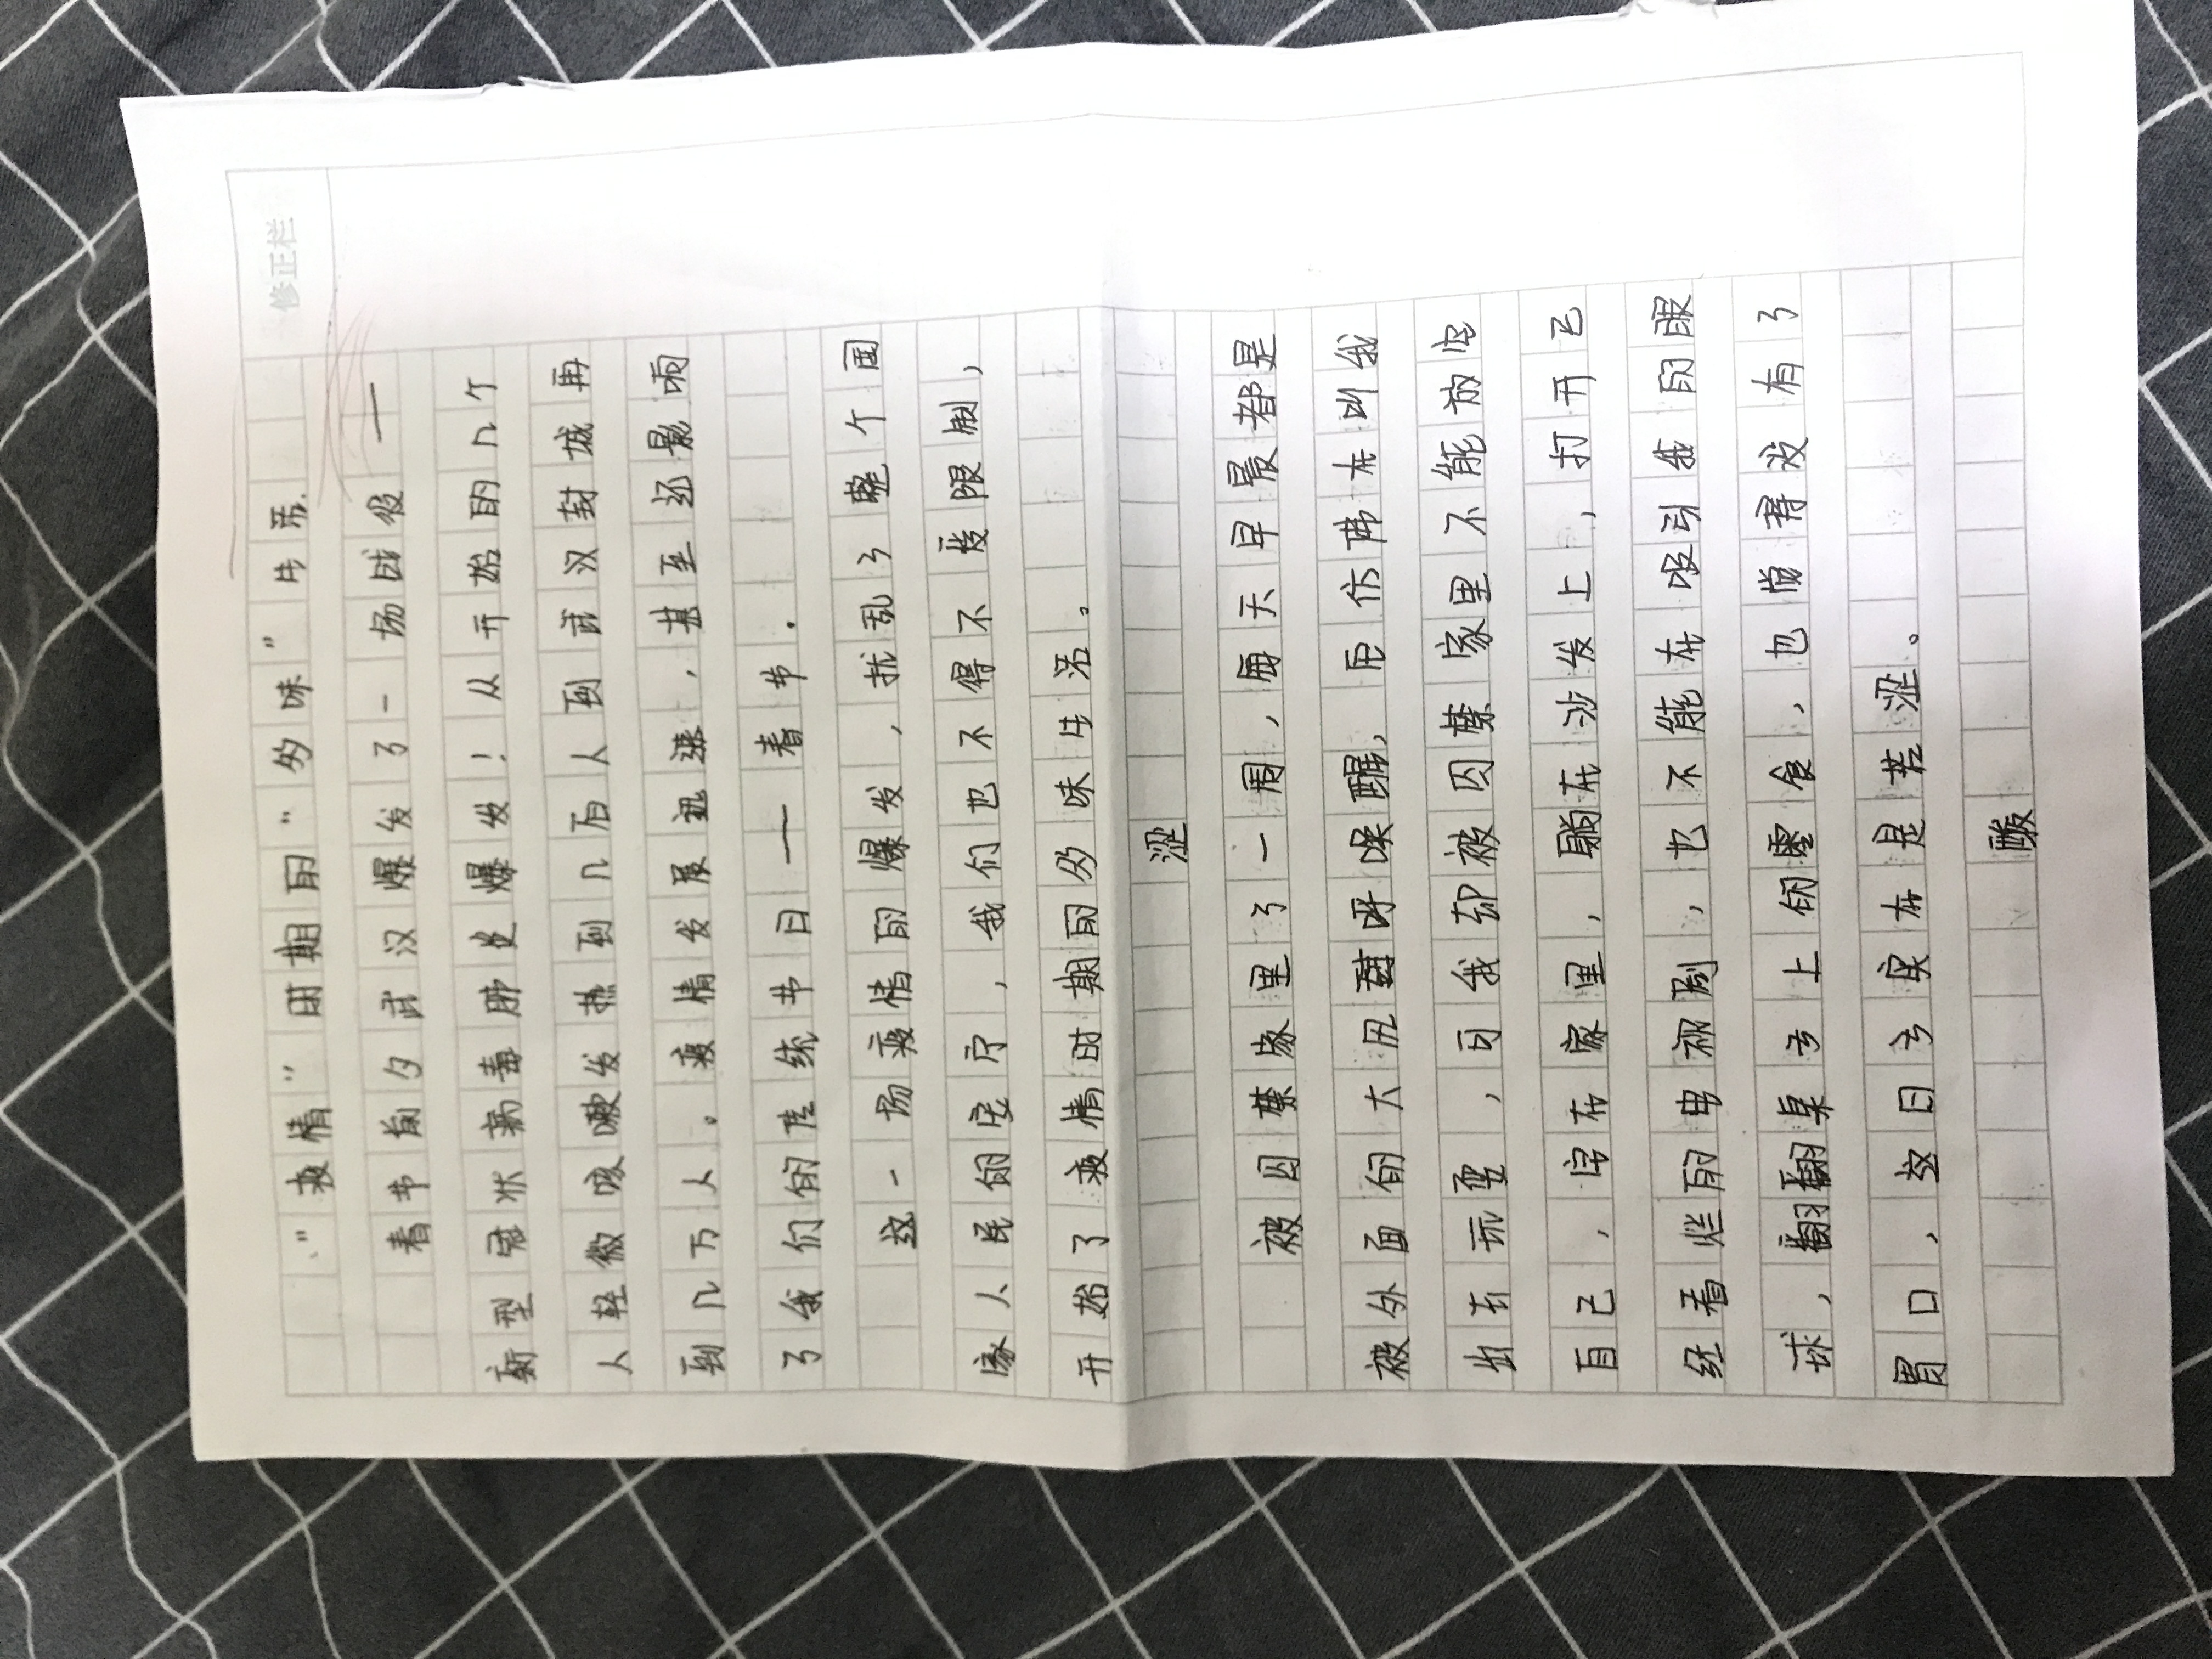 修正栏
“疫情”时期的“多味”生活
春节前夕武汉爆发了一场战役—
新型冠状病毒肺炎爆发！从开始的几个
人轻微咳嗽发热到几百人到武汉封城再
到几万人。疫情发展迅速，甚至还影响
了我们的传统节日—春节.
这一场疫情的爆发，扰乱了整个国
家人民的安宁，我们也不得不受限制，
开始了疫情时期的多味生活。
涩
被囚禁家里了一周，每天早晨都是
被外面的大丑 呼唤醒，后仿佛在叫我
出去玩耍，可我却被囚禁家里不能放空
自己，宅在家里，躺在沙发上，打开已
经看烂的电视剧，也不能在吸引我的眼
球，翻翻桌子上的零食，也尚寻没有了
胃口，这日子实在是苦涩。
酸